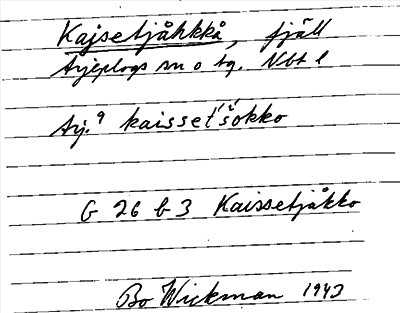 Kajsetjåhkkå, fjäll
Arjeplogs sn o tg. Nbt l
Arj. kaisset'šokko
G 26 b 3 Kaissetjåkko
Bo Wickman 1943